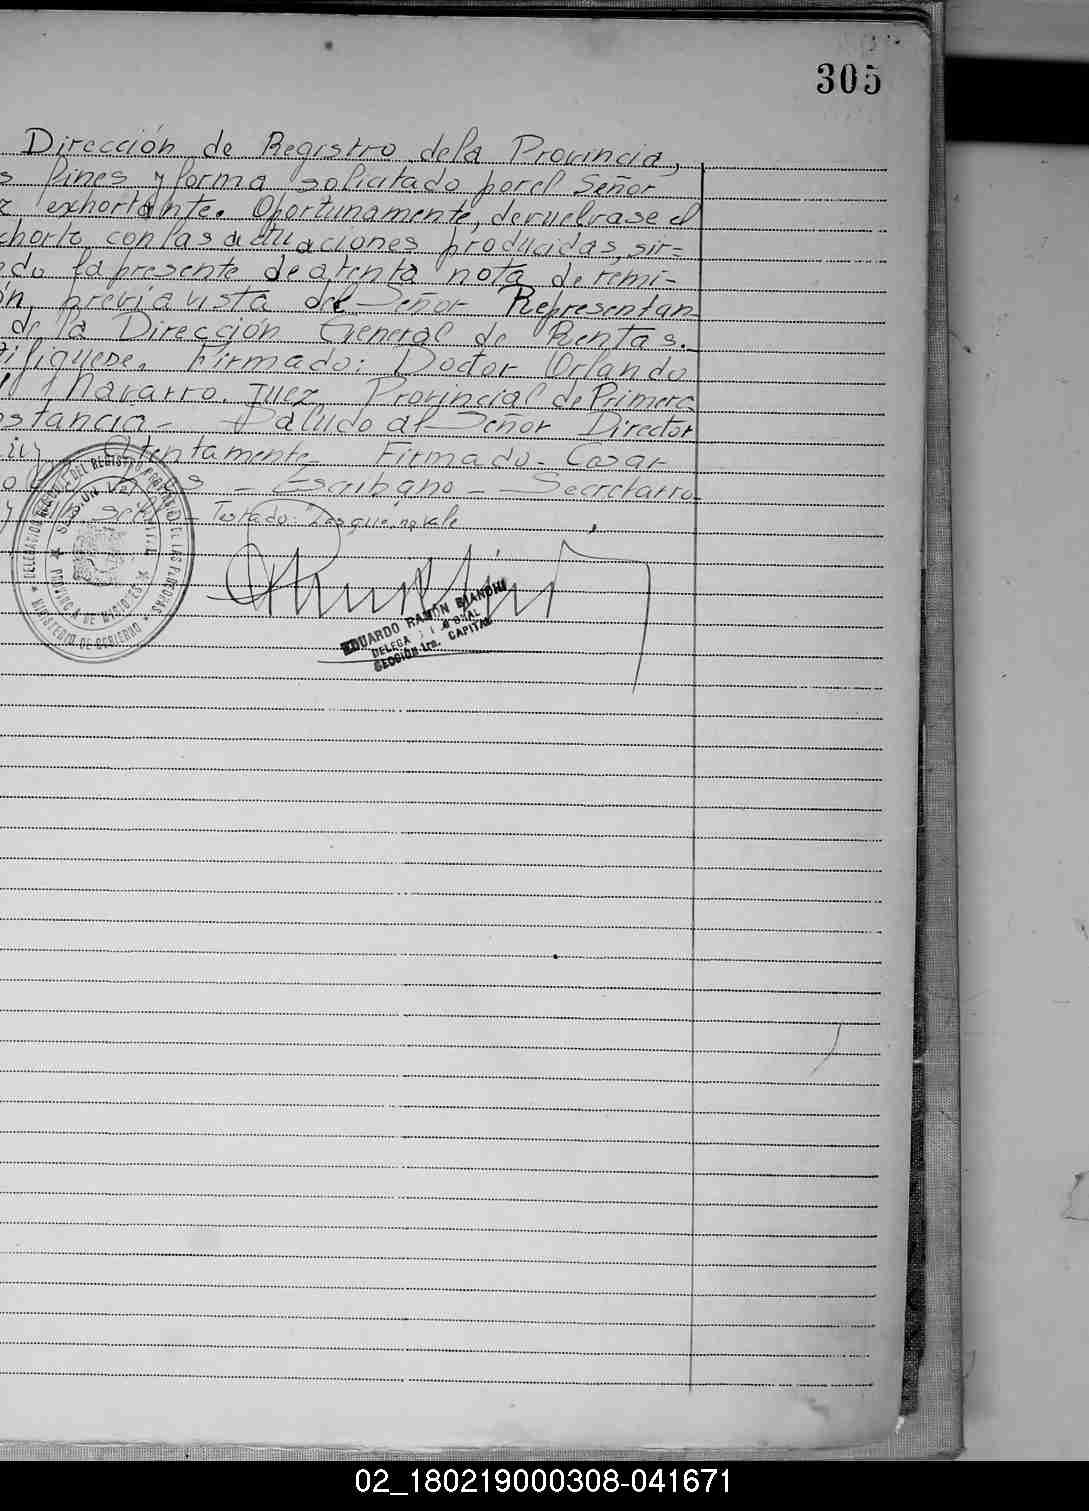 305
Dirección de Registro dela Provincia,
s fines y forma solicitado porel Señor
z exhortante. Oportunamente, devuelvase el
xhorto, conlas actuaciones producidas, sir=
ndo lapresente deatenta nota de remi-
ón, previa vista del Señor Representan
de la Dirección General de Rentas.
tifiquese. Firmado: Doctor Orlando
Navarro. Juez Provincial de Primera
nstancia - Saludo al Señor Director
Atentamente Firmado - Cesar
- Escribano - Secretario
- Testado: "Lasque, no vale
DELEGACION DEL REGISTRO PROVINCIAL DE LAS PERSONAS
PROVINCIA DE MISIONES
MINISTERIO DE GOBIERNO
EDUARDO RAMÓN BIANCHI
DELEGA
SECCIÓN 1ra. CAPITAL
02_180219000308-041671